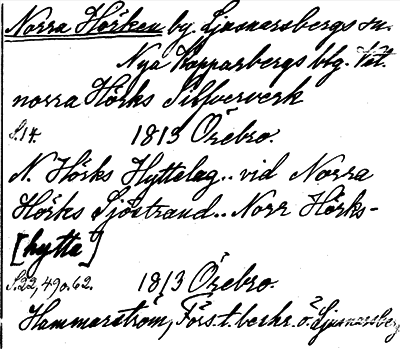 Norra Hörken by Ljusnarsbergs sn.
Nya Kopparbergs blg. Vst.
norra Hörks Silfververk
S.14. 1813 Örebro.
N. Hörks Hyttelag.. vid Norra
Hörks Sjöstrand.. Norr Hörks-
[hytta]
S.22, 49 o. 62. 1813 Örebro.
Hammarström, Förs. t. beskr. ö. Ljusnarsberg